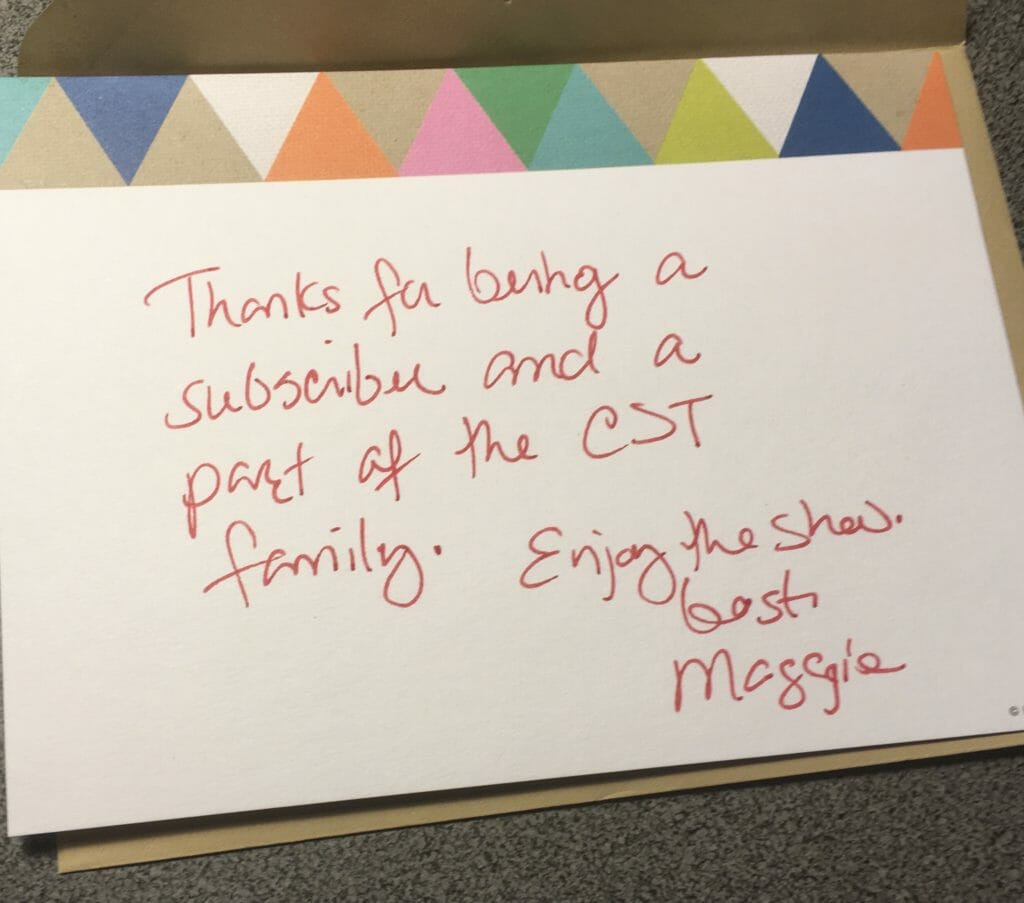 Thanks for being a
subscriber and a
part of the CST
family. Enjoy the show.
best,
Maggie
©